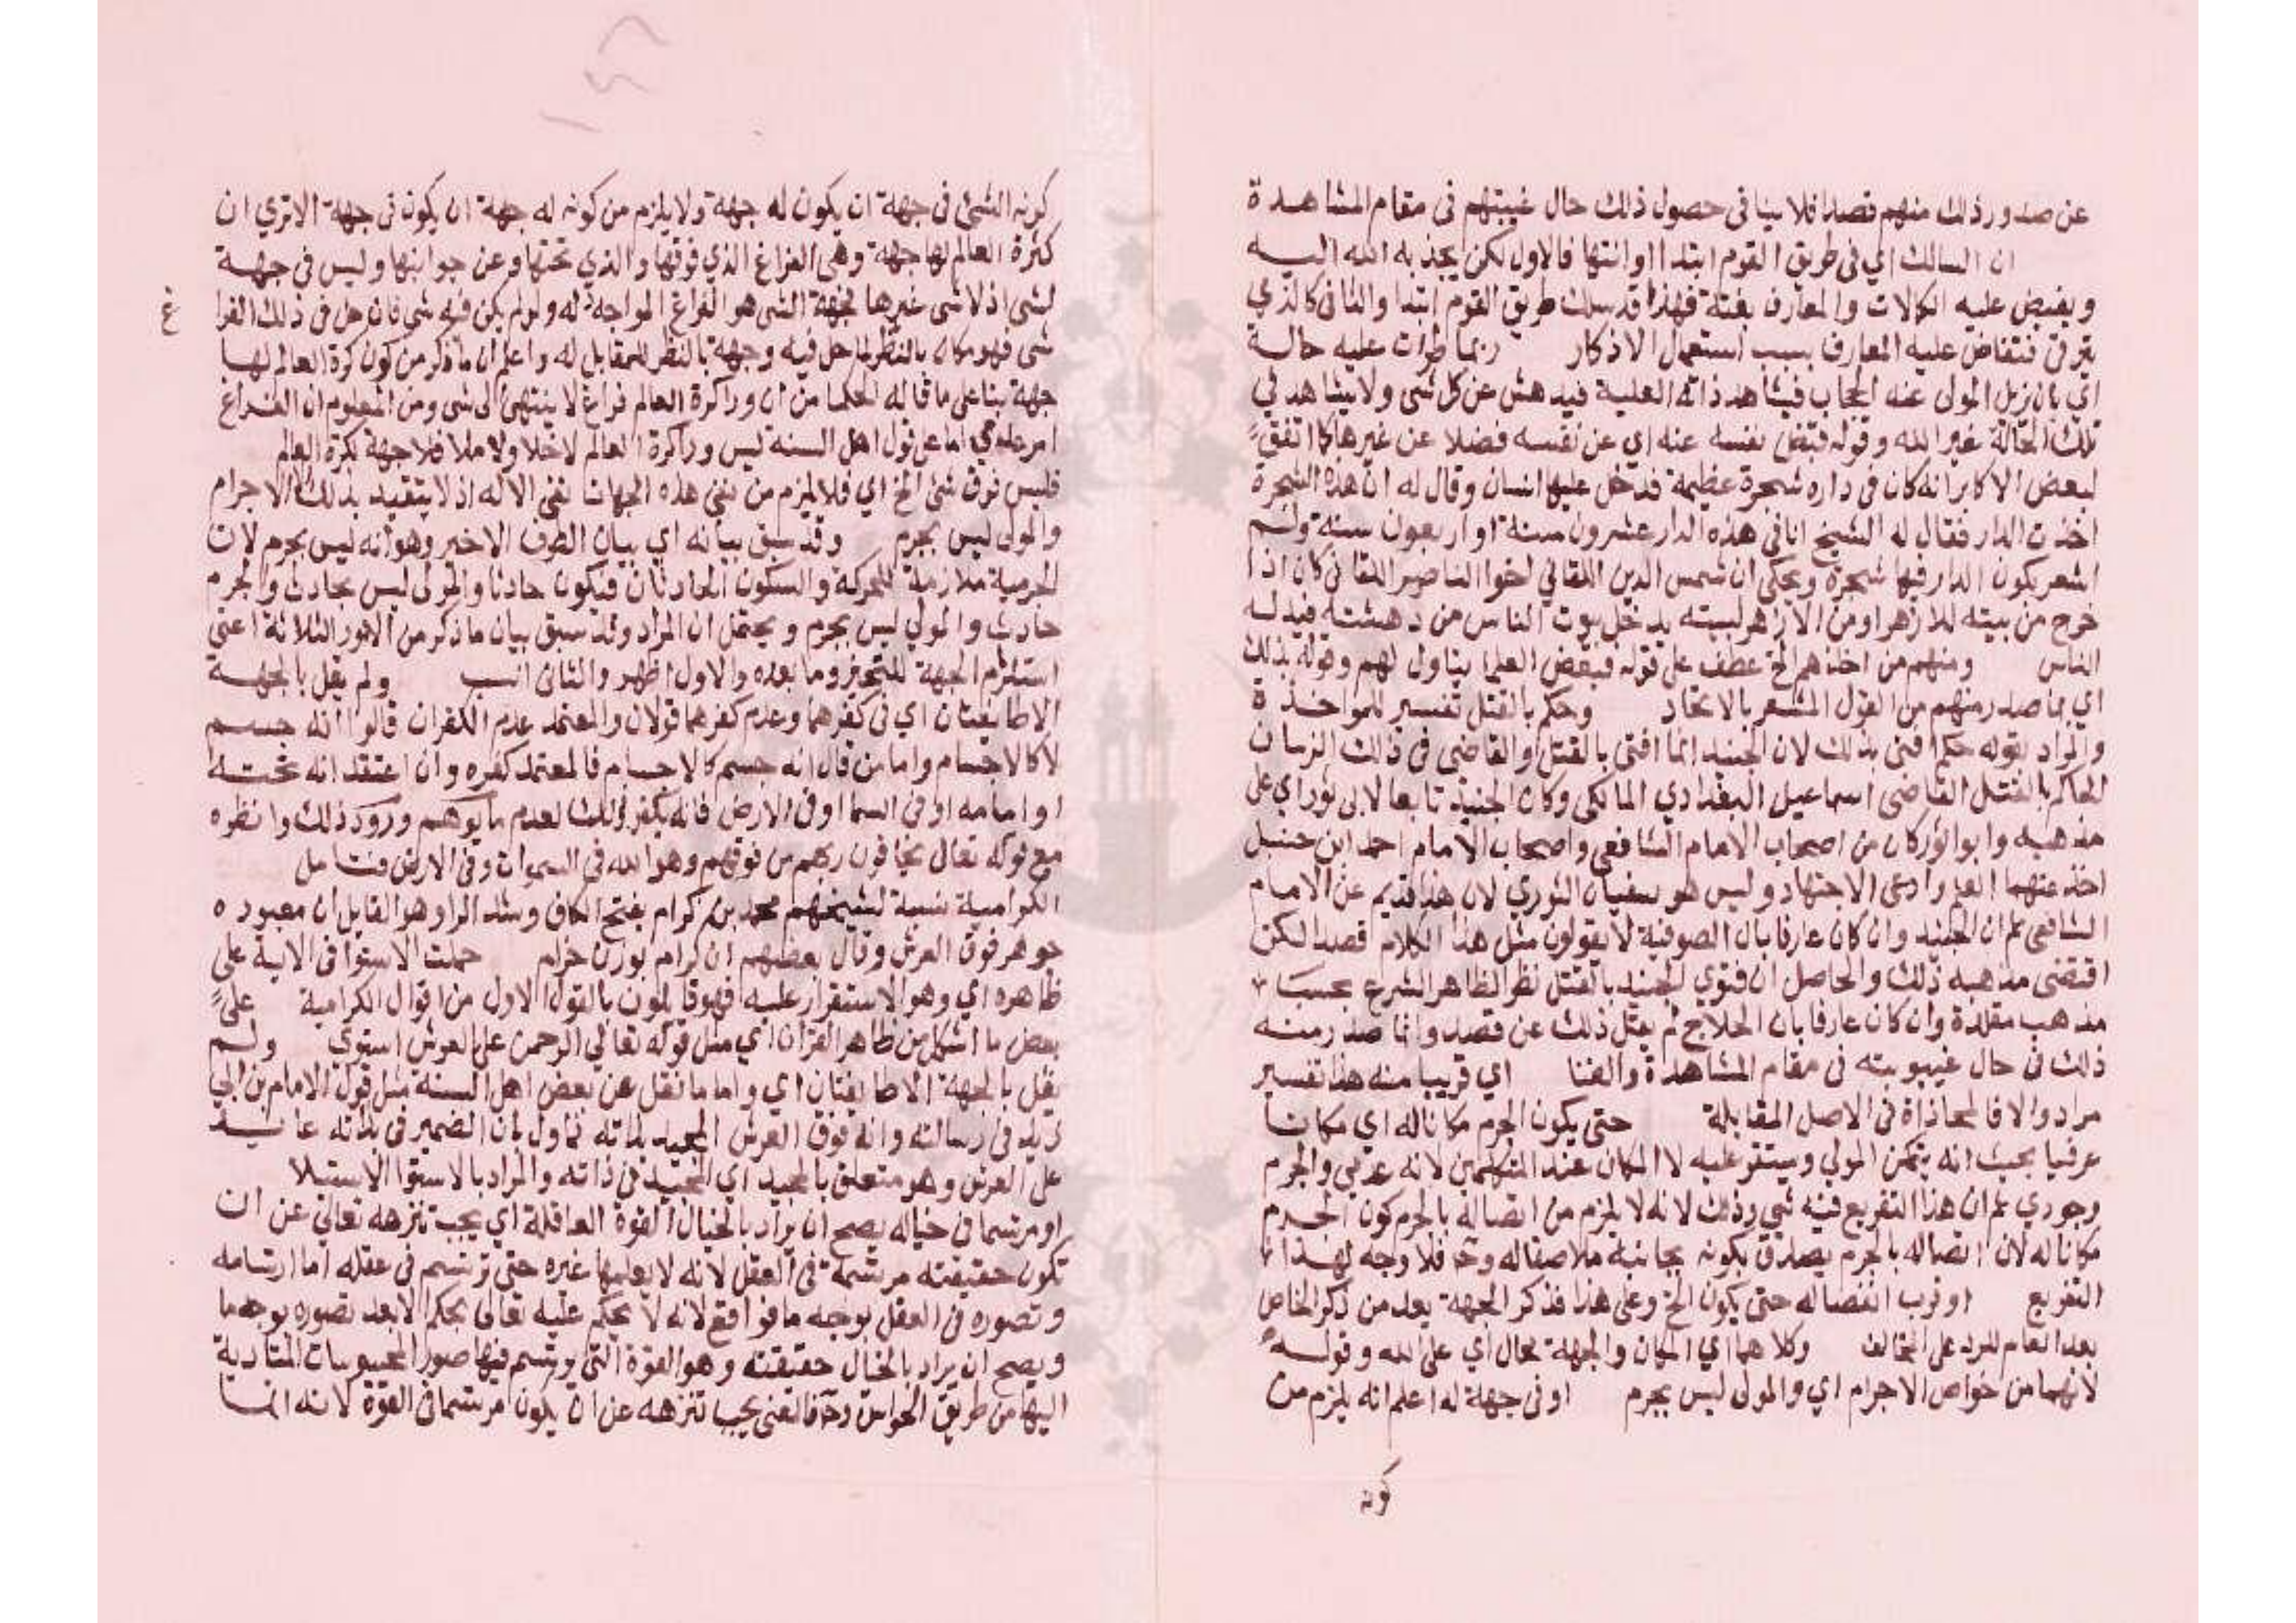 عن صدور ذلك منهم قصدا فلا ينافى حصول ذلك حال غيبتهم فى مقام المشاهدة
ان السالك اي فى طريق القوم ابتدا او انتها فالاول لكن يجذبه الله اليه
ويفيض عليه الكمالات والمعارف بغتة فهذا قد سلك طريق القوم ابتدا والثانى كالذي
يترقى فتفاض عليه المعارف بسبب استعمال الاذكار ربما طرات عليه حالة
اي بان يزيل المولى عنه الحجاب فيشاهد ذاته العلية فيدهش عن كل شى ولا يشاهد في
تلك الحالة غير الله وقوله فتفنى نفسه عنه اي عن نفسه فضلا عن غيرها كما اتفق
لبعض الاكابر انه كان فى داره شجرة عظيمة فدخل عليها انسان وقال له ان هذه الشجرة
اخذت الدار فقال له الشيخ انا فى هذه الدار عشرون سنة او اربعون سنة ولم
اشعر بكون الدار فيها شجرة ويحكى ان شمس الدين اللقاني اخوا الناصر اللقانى كان اذا
خرج من بيته للازهر او من الازهر لبيته يدخل بيوت الناس من دهشته فيدله
الناس ومنهم من اخذهم الخ عطف على قوله فبعض العلما يتاول لهم وقوله بذلك
اي بما صدر منهم من القول المشعر بالاتحاد وحكم بالقتل تفسير للمواخذة
والمراد بقوله حكم افتى بذلك لان الجنيد انما افتى بالقتل والقاضى فى ذلك الزمان
الحاكم بالقتل القاضى اسماعيل البغدادي المالكى وكان الجنيد تابعا لابى ثور اي على
مذهبه وابو ثور كان من اصحاب الامام الشافعى واصحاب الامام احمد ابن حنبل
اخذ عنهما العلم وادعى الاجتهاد وليس هو سفيان الثوري لان هذا قديم عن الامام
الشافعى ثم ان الجنيد وان كان عارفا بان الصوفية لا يقولون مثل هذا الكلام قصدا لكن
اقتضى مذهبه ذلك والحاصل ان فتوي الجنيد بالقتل نظر الظاهر الشرع بحسب
مذهب مقلده وان كان عارفا بان الحلاج لم يقل ذلك عن قصد وانما صدر منه
ذلك فى حال غيبوبيته فى مقام المشاهدة والفنا اي قريبا منه هذا تفسير
مراد والا فالمحاذاة فى الاصل المقابلة حتى يكون الجرم مكانا له اي مكانا
عرفيا بحيث انه يتمكن المولي ويستقر عليه لا المكان عند المتكلمين لانه عدمي والجرم
وجودي ثم ان هذا التفريع فيه شي وذلك لانه لا يلزم من اتصاله بالجرم كون الجرم
مكانا له لان اتصاله بالجرم يصدق بكونه بجانبه ملاصقا له وح فلا وجه لهذا
التفريع او قرب انفصاله حتى يكون الخ وعلى هذا فذكر الجهة بعد من ذكر الخاص
بعد العام للرد على المخالف وكلاهما اي المكان والجهة محال اي على الله وقوله
لانهما من خواص الاجرام اي والمولى ليس بجرم او فى جهة له اعلم انه يلزم من
كونه
كونه الشى فى جهة ان يكون له جهة ولا يلزم من كونه له جهة ان يكون فى جهة الا تري ان
كرة العالم لها جهة وهى الفراغ الذي فوقها والذي تحتها وعن جوانبها وليس فى جهة
لشى اذ لا شى غيرها فجهة الشى هو الفراغ المواجه له ولو لم يكن فيه شى فان حل فى ذلك الفرا
غ
شى فهو مكان بالنظر لما حل فيه وجهة بالنظر للمقابل له واعلم ان ما ذكر من كون كرة العالم لها
جهة بنا على ما قاله الحكما من ان ورا كرة العالم فراغ لا ينتهى الى شى ومن المعلوم ان الفراغ
امر عدمي اما على قول اهل السنة ليس ورا كرة العالم لا خلا ولا ملا فلا جهة لكرة العالم
فليس فوق شى الخ اي فلا يلزم من نفى هذه الجهات نفى الاله اذ لا يتقيد بذلك الا الاجرام
والمولى ليس بجرم وقد سبق بيانه اي بيان الطرف الاخير وهو انه ليس بجرم لان
الجرمية ملازمة للحركة والسكون الحادثان فيكون حادثا والمولى ليس بحادث والجرم
حادث والمولي ليس بجرم ويحتمل ان المراد وقد سبق بيان ما ذكر من الامور الثلاثة اعنى
استلزام الجهة للتحيز وما بعده والاول اظهر والثانى انسب ولم يقل بالجهة
الا طايفتان اي فى كفرهما وعدم كفرهما قولان والمعتمد عدم الكفران قالوا انه جسم
لا كالاجسام واما من قال انه جسم كالاجسام فالمعتمد كفره وان اعتقد انه تحته
او امامه او فى السما او فى الارض فانه يكفر وذلك لعدم ما يوهم ورود ذلك وانظره
مع قوله تعالى يخافون ربهم من فوقهم وهو الله فى السموات وفى الارض فتامل
الكرامية نسبة لشيخهم محمد بن كرام بفتح الكاف وشد الرا وهو القايل ان معبوده
جوهر فوق العرش وقال بعضهم ان كرام بوزن حزام حملت الاستوا فى الاية على
ظاهره اي وهو الاستقرار عليه فهو قايلون بالقول الاول من اقوال الكرامية على
بعض ما اشكل من ظاهر القران اي مثل قوله تعالي الرحمن على العرش استوي ولم
يقل بالجهة الا طايفتان اي واما ما نقل عن بعض اهل السنة مثل قول الامام بن ابي
زيد فى رسالته وانه فوق العرش المجيد بذاته فماول بان الضمير فى بذاته عايد
على العرش وهو متعلق بالمجيد اي المجيد فى ذاته والمراد بالاستوا الاستيلا
او مرتسما فى خياله يصح ان يراد بالخيال القوة العاقلة اي يجب تنزهه تعالي عن ان
تكون حقيقته مرتسمة فى العقل لانه لا يعلمها غيره حتى ترتسم فى عقله اما ارتسامه
وتصوره فى العقل بوجه ما فواقع لانه لا يحكم عليه تعالى بحكم الا بعد تصوره بوجه ما
ويصح ان يراد بالخيال حقيقته وهو القوة التي يرتسم فيها صور المحسوسات المتادية
اليها من طريق الحواس وح فالمعنى يجب تنزهه عن ان يكون مرتسما فى القوة لانه انما